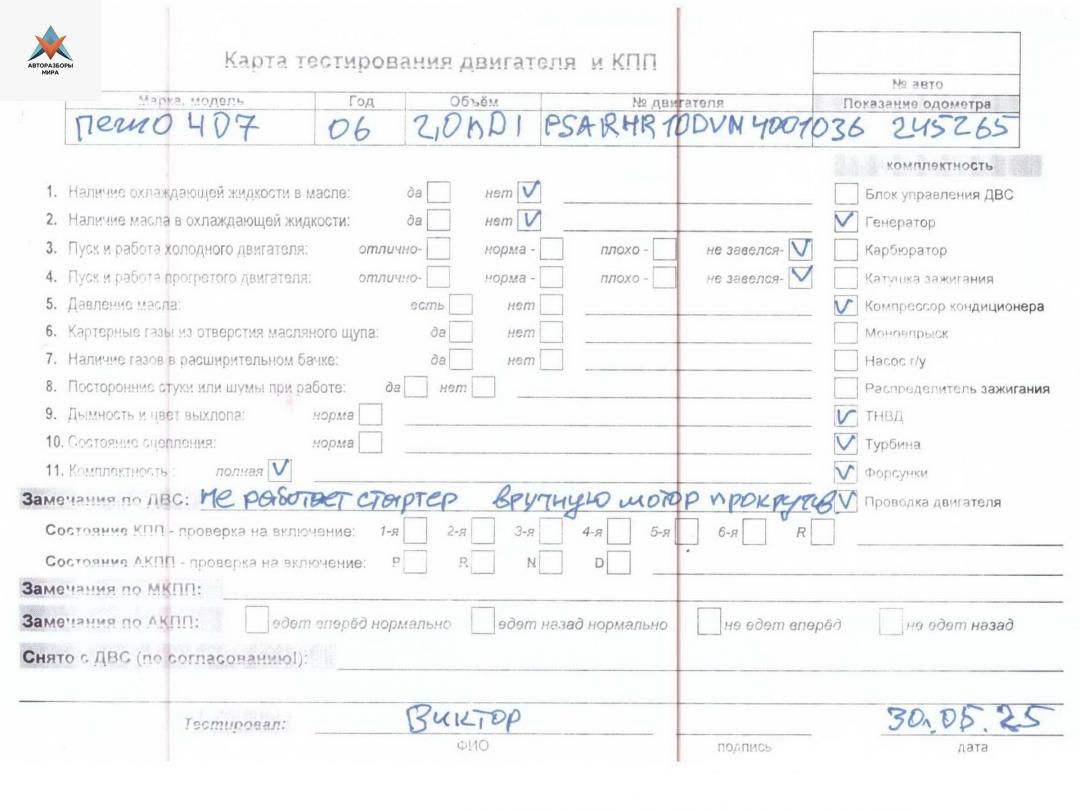 АВТОРАЗБОРЫ
МИРА
Карта тестирования двигателя и КПП
№ авто
Марка, модель Год Объём № двигателя Показание одометра
пежо 407 06 2,0 HDI PSA RHR 10DVM 4001036 245265
комплектность
1. Наличие охлаждающей жидкости в масле: да нет ✓ Блок управления ДВС
2. Наличие масла в охлаждающей жидкости: да нет ✓ ✓ Генератор
3. Пуск и работа холодного двигателя: отлично- норма - плохо - не завелся- ✓ Карбюратор
4. Пуск и работа прогретого двигателя: отлично- норма - плохо - не завелся- ✓ Катушка зажигания
5. Давление масла: есть нет ✓ Компрессор кондиционера
6. Картерные газы из отверстия масляного щупа: да нет Моновпрыск
7. Наличие газов в расширительном бачке: да нет Насос г/у
8. Посторонние стуки или шумы при работе: да нет Распределитель зажигания
9. Дымность и цвет выхлопа: норма ✓ ТНВД
10. Состояние сцепления: норма ✓ Турбина
11. Комплектность : полная ✓ ✓ Форсунки
Замечания по ДВС: Не работает стартер вручную мотор прокручив. ✓ Проводка двигателя
Состояние КПП - проверка на включение: 1-я 2-я 3-я 4-я 5-я 6-я R
Состояние АКПП - проверка на включение: P R N D
Замечания по МКПП:
Замечания по АКПП: едет вперёд нормально едет назад нормально не едет вперёд не едет назад
Снято с ДВС (по согласованию!):
Тестировал: Виктор 30.05.25
ФИО подпись дата